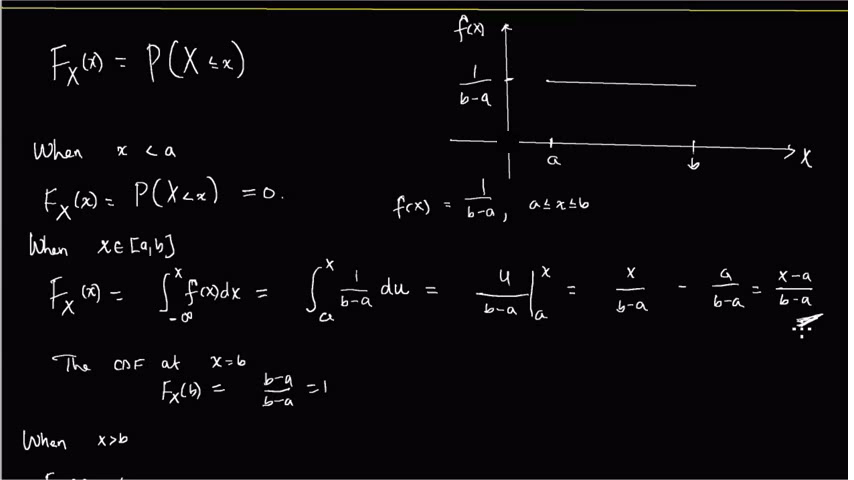 F_X(x) = P(X ≤ x)
f(x)
1/(b-a)
a b X
f(x) = 1/(b-a), a ≤ x ≤ b
When x < a
F_X(x) = P(X < x) = 0.
When x ∈ [a,b]
F_X(x) = ∫_{-∞}^{x} f(x)dx = ∫_{a}^{x} 1/(b-a) du = u/(b-a) |_{a}^{x} = x/(b-a) - a/(b-a) = (x-a)/(b-a)
The CDF at x=b
F_X(b) = (b-a)/(b-a) = 1
When x>b